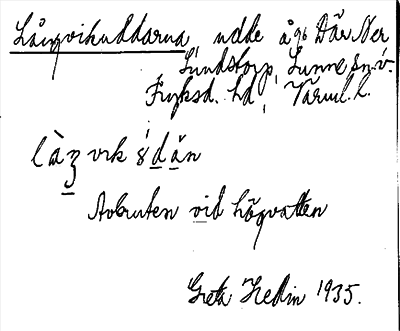 Långvikuddarna, udde å g% Där Ner
Lundstorp, Sunne sn. v.
Fryksd. hd, Värml. l.
Avbruten vid högvatten
Greta Hedin 1935.